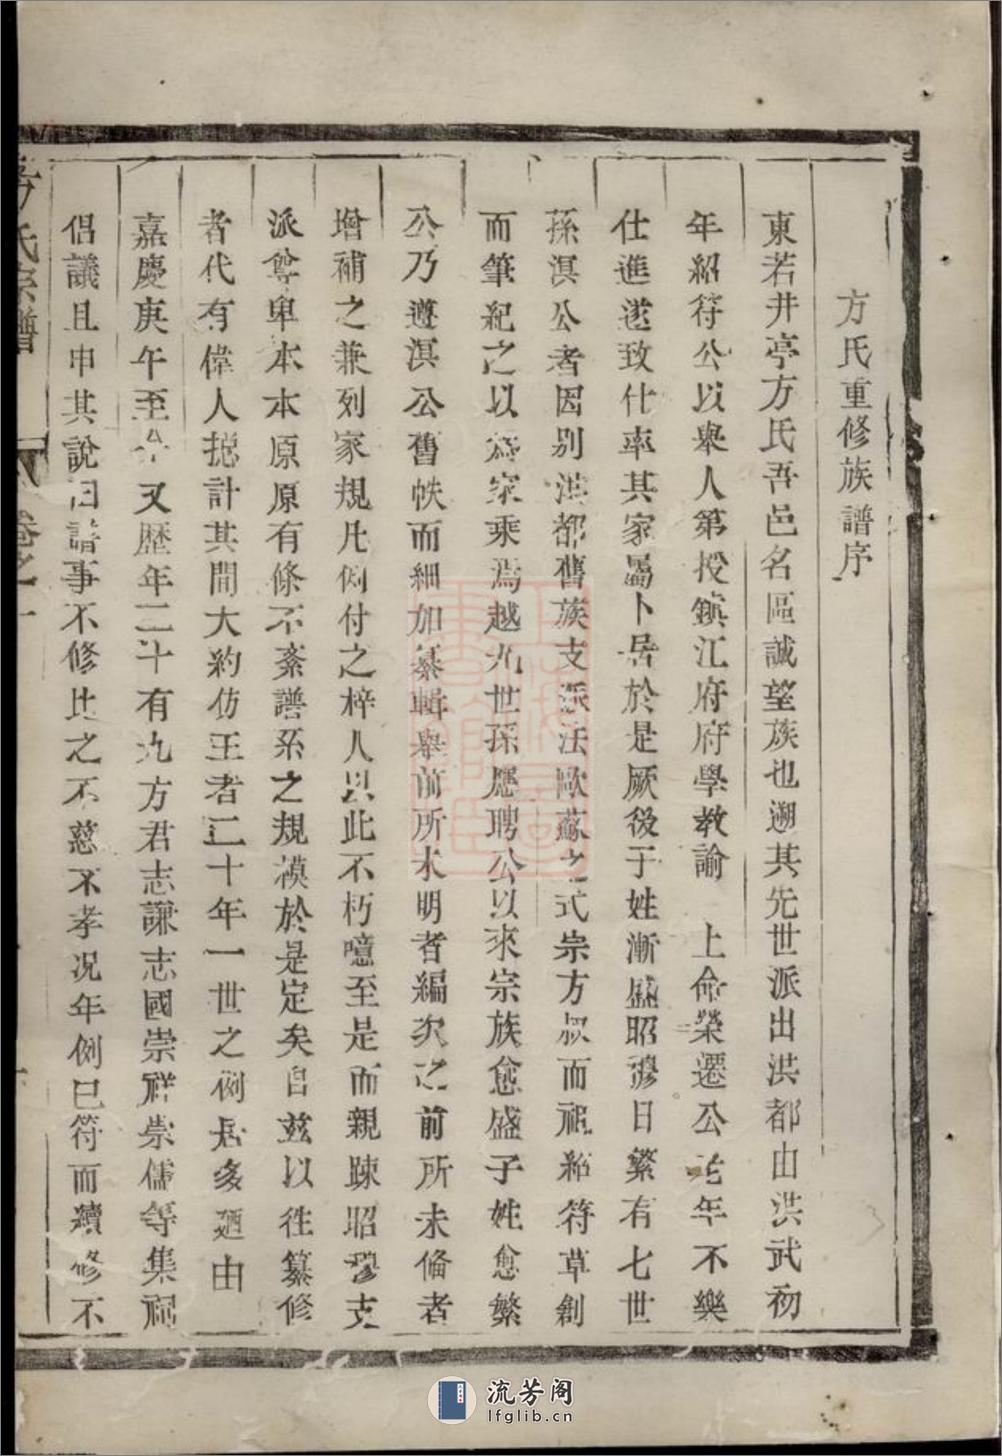 方氏重修族譜序
東若井亭方氏吾邑名區誠望族也遡其先世派出洪都由洪武初
年紹符公以舉人第授鎮江府府學教諭　上命榮遷公老年不樂
仕進遂致仕率其家屬卜居於是厥後于姓漸盛昭穆日繁有七世
孫溟公者因别洪都舊族支派法歐蘇之式宗方叔而祖紹符草創
而筆紀之以為家乘焉越九世孫應聘公以來宗族愈盛子姓愈繁
公乃遵溟公舊帙而細加纂輯舉前所未明者編次之前所未備者
增補之兼列家規凡例付之梓人以此不朽噫至是而親踈昭穆支
派尊卑本本原原有條不紊譜系之規模於是定矣自兹以徃纂修
者代有偉人摠計其間大約仿王者二十年一世之例居多廼由
嘉慶庚午至今又歷年二十有九方君志謙志國崇祥崇儒等集祠
倡議且申其說曰譜事不修比之不慈不孝况年例已符而續修不
方氏宗譜
卷之一
流芳阁
lfglib.cn